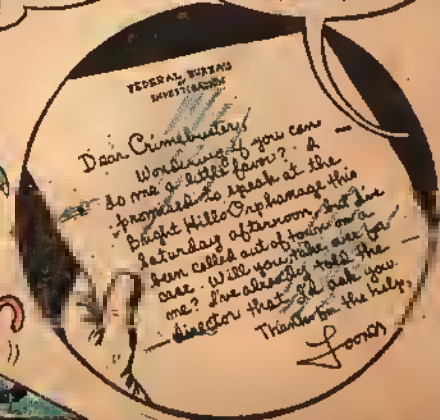 FEDERAL BUREAU
OF
INVESTIGATION
Dear Crimebuster,
Wondering if you can
do me a little favor? I
promised to speak at the
Bright Hills Orphanage this
Saturday afternoon, but I've
been called out of town on a
case. Will you take over for
me? I've already told the
director that I'd ask you.
Thanks for the help,
Loomis